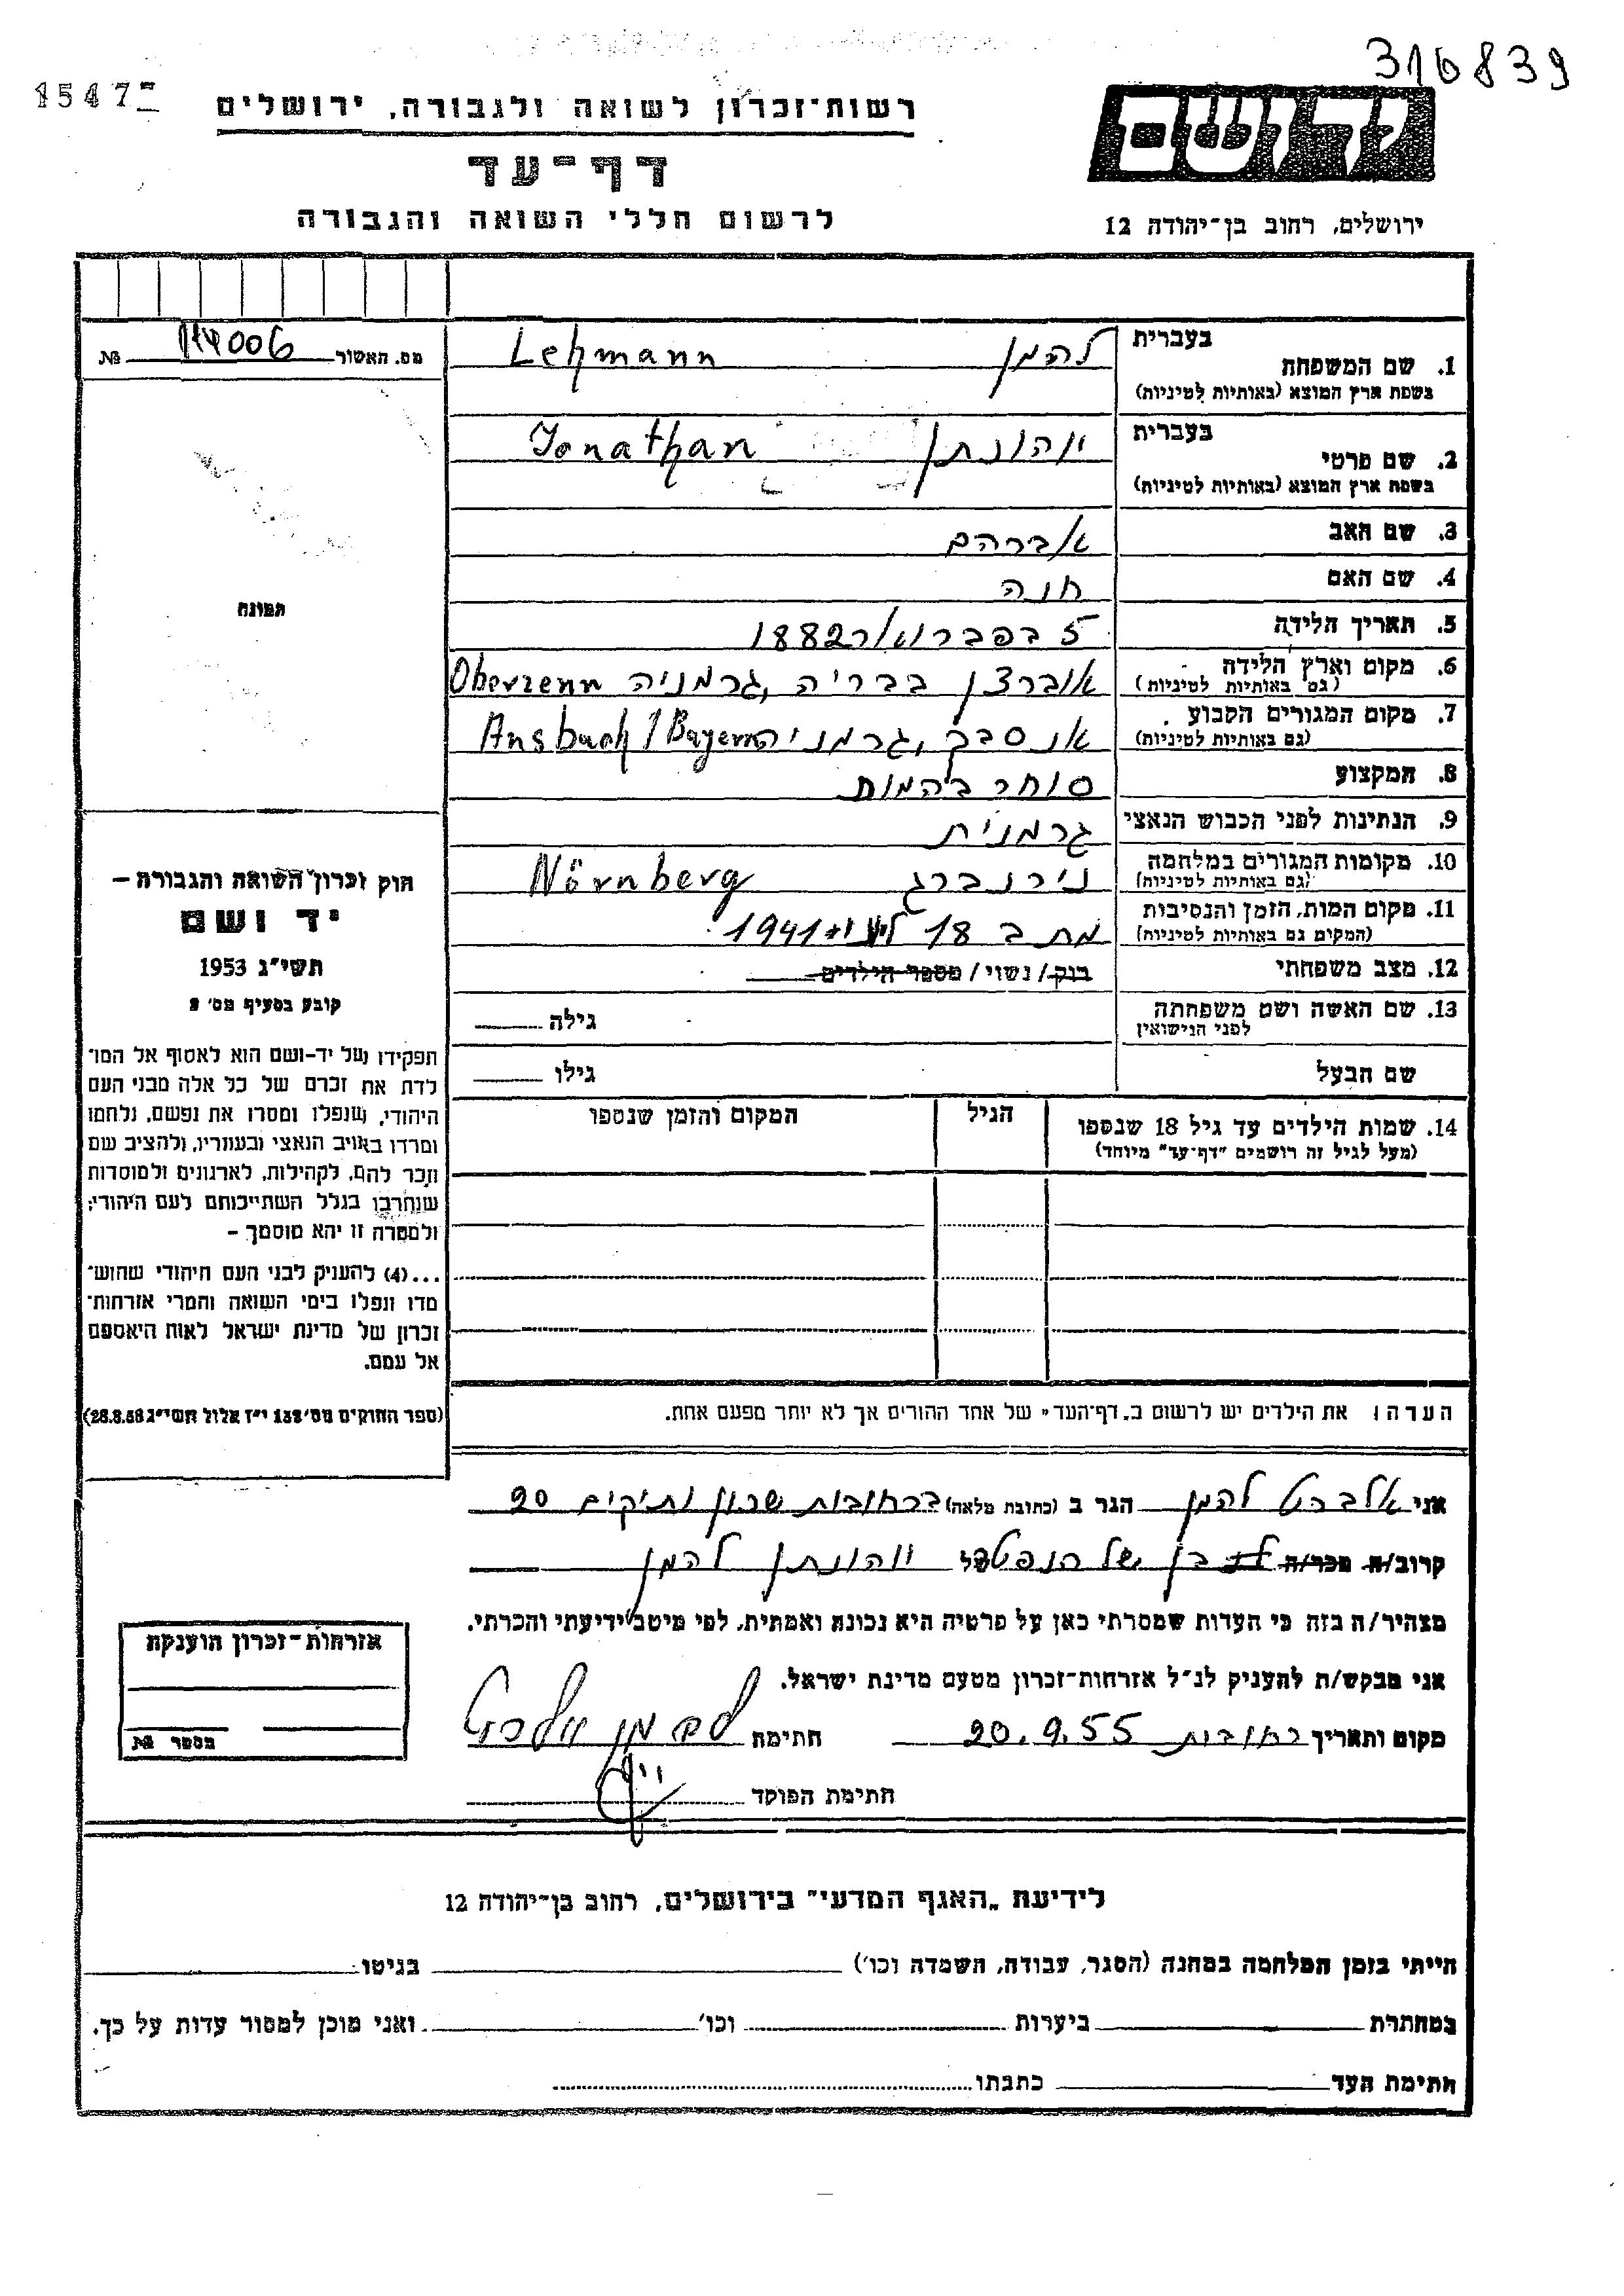 316839
1547
רשות־זכרון לשואה ולגבורה, ירושלים
דף־עד
לרשום חללי השואה והגבורה
ידושם
ירושלים, רחוב בן־יהודה 12
מס. האשור 114006 №
1. שם המשפחה
בעברית להמן Lehmann
בשפת ארץ המוצא (באותיות לטיניות)
2. שם פרטי
בעברית יהונתן Jonathan
בשפת ארץ המוצא (באותיות לטיניות)
3. שם האב אברהם
4. שם האם חנה
5. תאריך הלידה 5 בפברואר 1882
6. מקום וארץ הלידה אוברצן בבריה, גרמניה Oberzenn
(גם באותיות לטיניות)
7. מקום המגורים הקבוע אנסבך, גרמניה Ansbach/Bayern
(גם באותיות לטיניות)
8. המקצוע סוחר בהמות
9. הנתינות לפני הכבוש הנאצי גרמנית
10. מקומות המגורים במלחמה נירנברג Nürnberg
(גם באותיות לטיניות)
11. מקום המות, הזמן והנסיבות מת ב 18 1941
(המקום גם באותיות לטיניות)
12. מצב משפחתי רווק/ נשוי/ מספר הילדים
13. שם האשה ושם משפחתה גילה
לפני הנישואין
שם הבעל גילו
14. שמות הילדים עד גיל 18 שנספו הגיל המקום והזמן שנספו
(מעל לגיל זה רושמים "דף־עד" מיוחד)
הערה: את הילדים יש לרשום ב„דף־העד" של אחד ההורים אך לא יותר מפעם אחת.
תמונה
חוק זכרון השואה והגבורה –
יד ושם
תשי״ג 1953
קובע בסעיף מס׳ 2
תפקידו של יד־ושם הוא לאסוף אל המו־
לדת את זכרם של כל אלה מבני העם
היהודי, שנפלו ומסרו את נפשם, נלחמו
ומרדו באויב הנאצי ובעוזריו, ולהציב שם
וזכר להם, לקהילות, לארגונים ולמוסדות
שנחרבו בגלל השתייכותם לעם היהודי;
ולמטרה זו יהא מוסמך –
...(4) להעניק לבני העם היהודי שהוש־
מדו ונפלו בימי השואה והמרי אזרחות־
זכרון של מדינת ישראל לאות היאספם
אל עמם.
(ספר החוקים מס׳ 132 י״ז אלול תשי״ג 28.8.53)
אני אלברט להמן הגר ב (כתובת מלאה) ברחובות שכון ותיקים 20
קרוב/ה מכר/ה בן של הנפטר של יהונתן להמן
מצהיר/ה בזה כי העדות שמסרתי כאן על פרטיה היא נכונה ואמתית, לפי מיטב ידיעתי והכרתי.
אני מבקש/ת להעניק לנ״ל אזרחות־זכרון מטעם מדינת ישראל.
מקום ותאריך רחובות 20.9.55 חתימה להמן אלברט
חתימת הפוקד
אזרחות־זכרון הוענקה
מספר №
לידיעת „האגף המדעי" בירושלים, רחוב בן־יהודה 12
הייתי בזמן המלחמה במחנה (הסגר, עבודה, השמדה וכו׳) בגיטו
במחתרת ביערות וכו׳ ואני מוכן למסור עדות על כך.
חתימת העד כתבתו